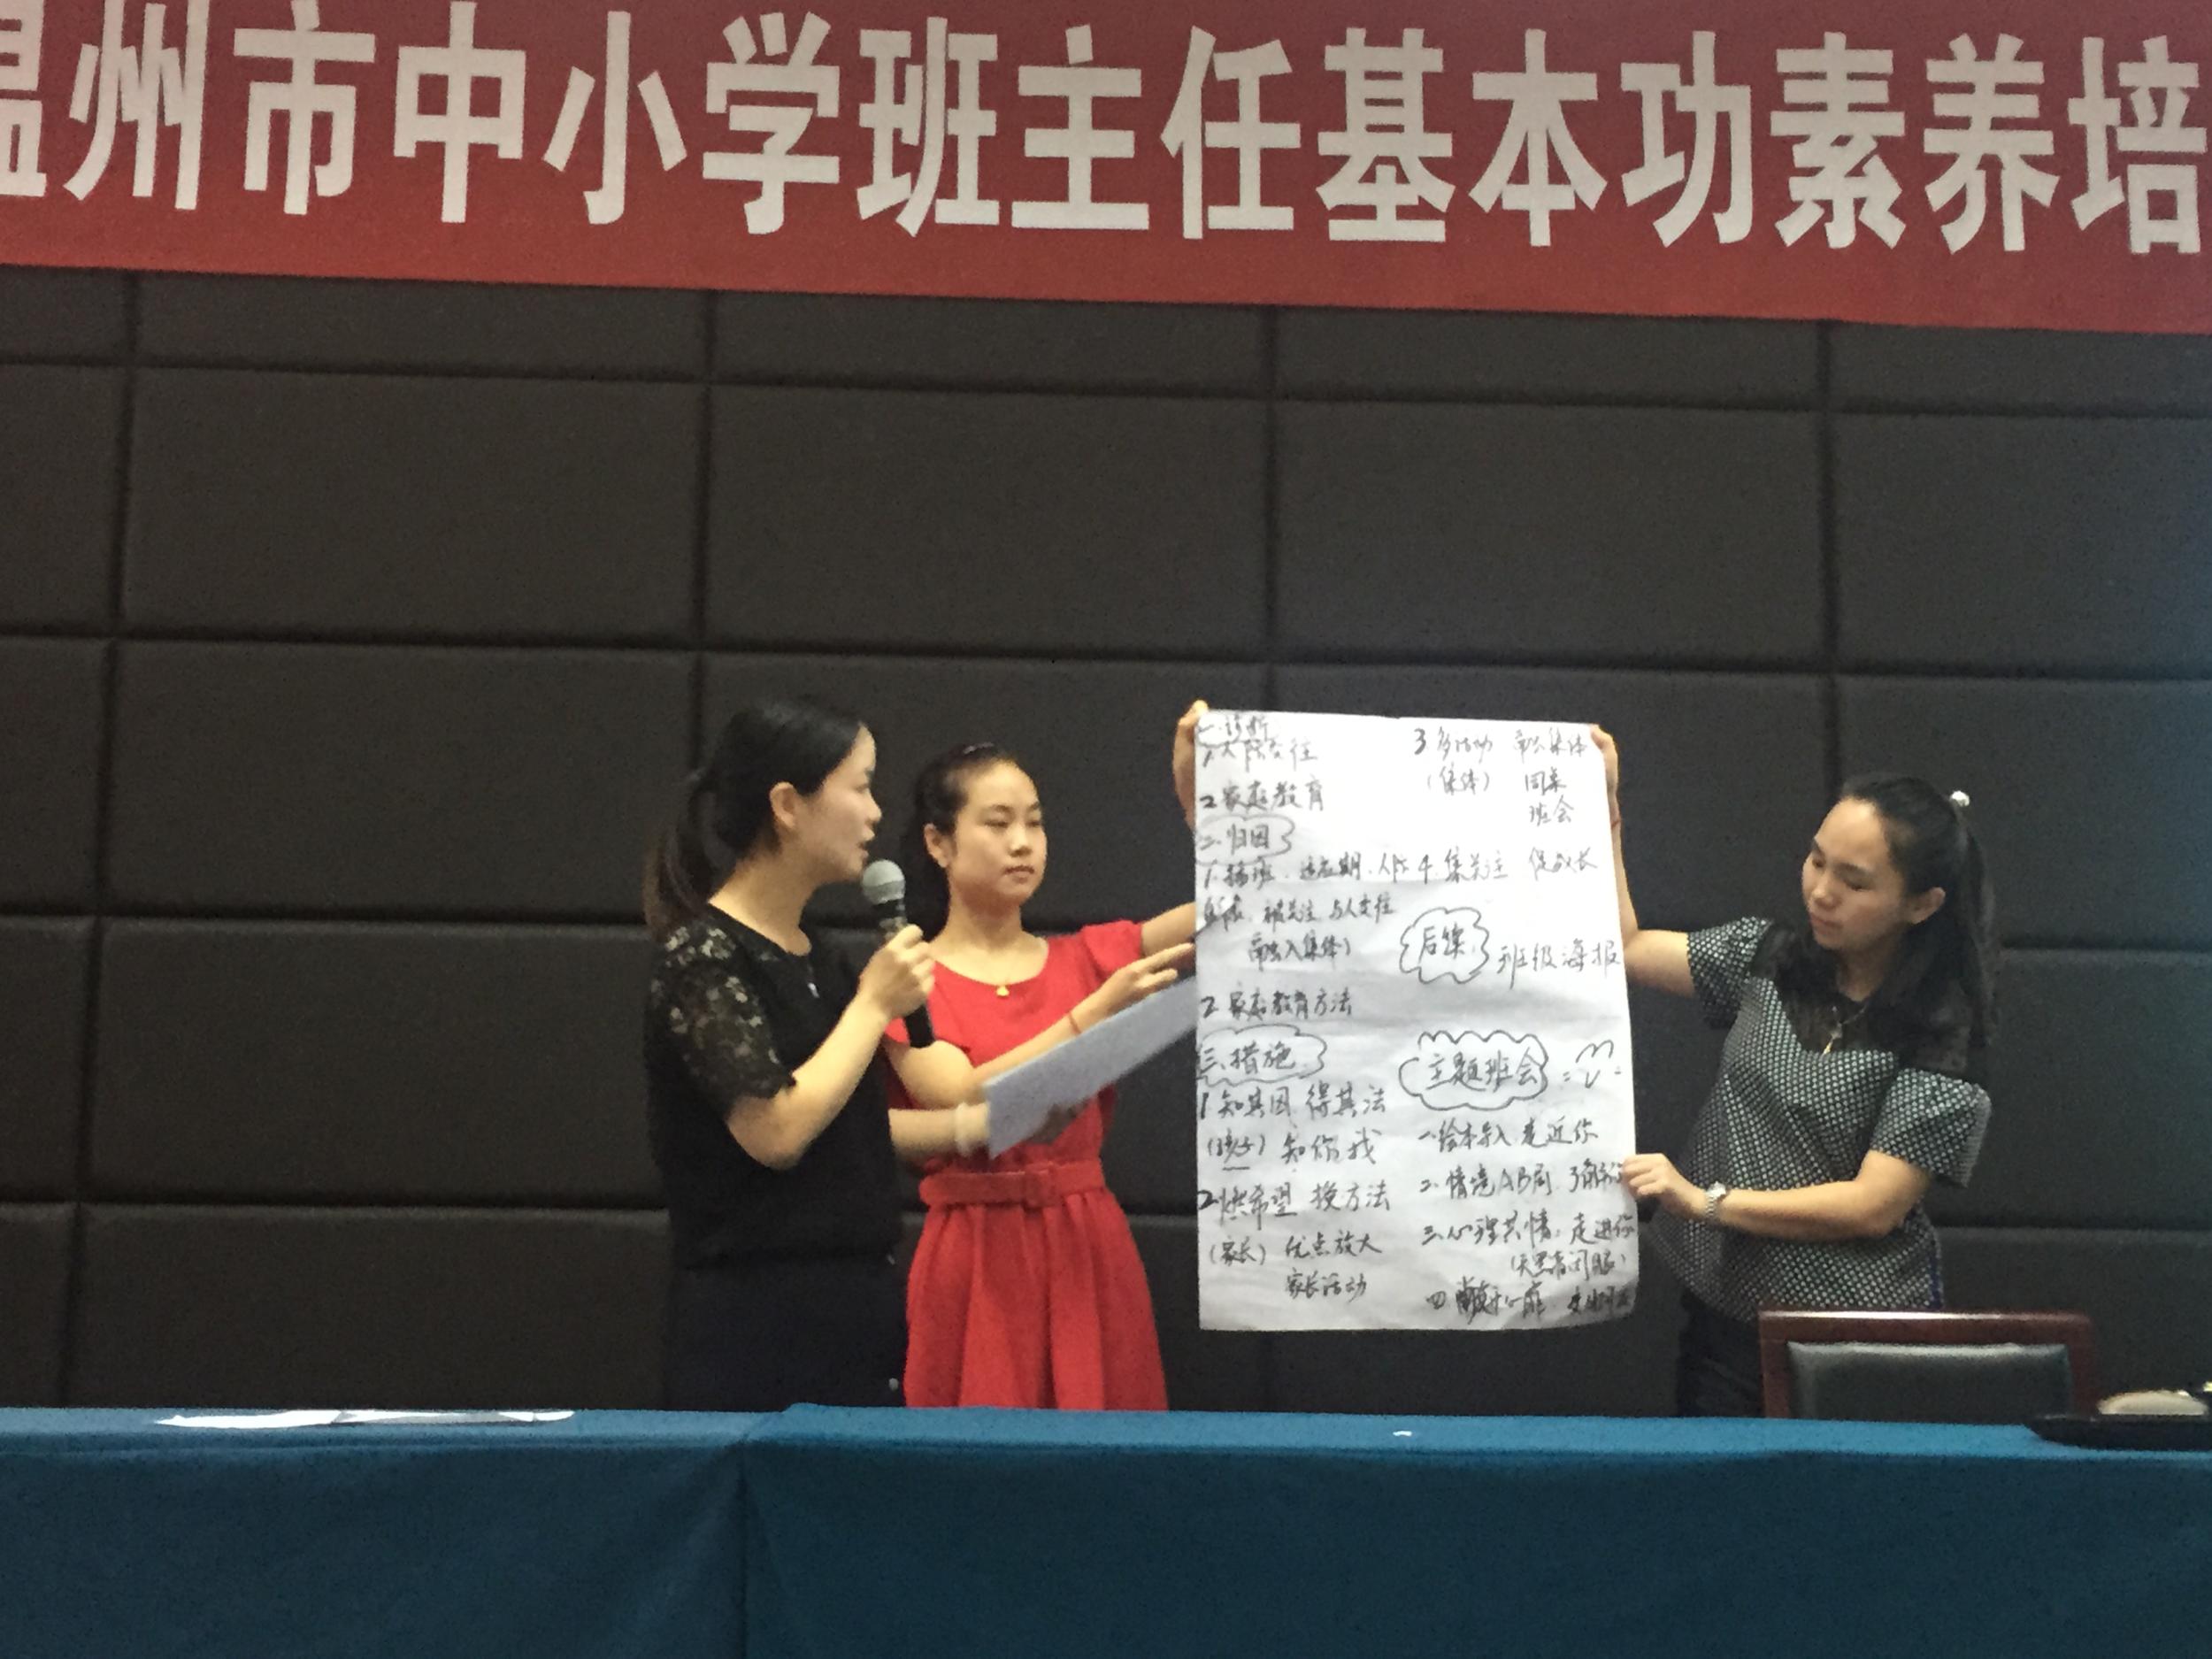 温州市中小学班主任基本功素养培
一.诊断
1.人际交往
2.家庭教育
二.归因
1.插班.适应期.人际
被关注 与人交往
融入集体)
2.家庭教育方法
三.措施
1.知其因 得其法
(孩子) 知你我
2.燃希望 换方法
(家长) 优点放大
家长活动
3.多活动 融集体
(集体) 同桌
班会
4.集关注 促成长
后续 班级海报
主题班会
一.绘本导入 走近你
二.情境AB剧 了解你
三.心理共情.走进你
(天黑请闭眼)
四